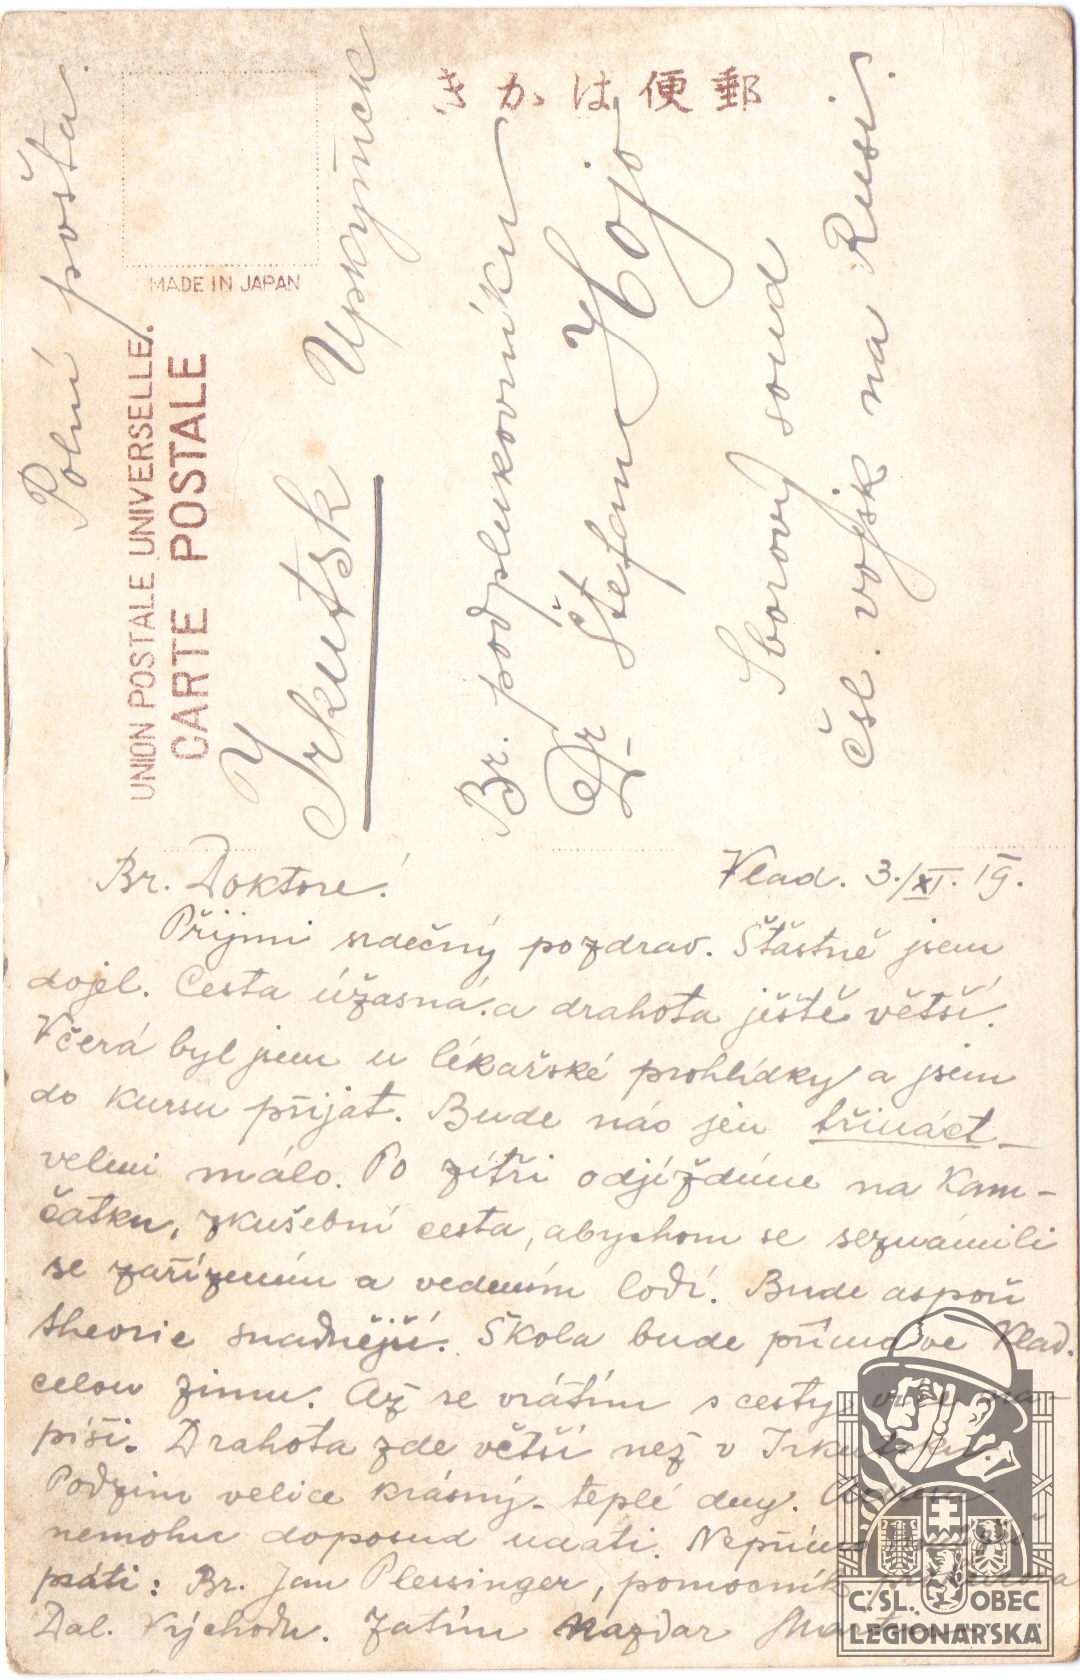 きかは便郵
MADE IN JAPAN
UNION POSTALE UNIVERSELLE.
CARTE POSTALE
Polní pošta.
Irkutsk
Br. podplukovníku
Dr Štefan
Sborový soud
čsl. vojsk na Rusi.
Br. Doktore! Vlad. 3./XI. 19.
Přijmi srdečný pozdrav. Šťastně jsem
dojel. Cesta úžasná a drahota ještě větší.
Včerá byl jsem u lékařské prohlídky a jsem
do kursu přijat. Bude nás jen třináct –
velmi málo. Po zítři odjíždíme na Kam-
čatku, zkušební cesta, abychom se seznámili
se zařízením a vedením lodí. Bude aspoň
theorie snadnější. Škola bude přímo ve Vlad.
celou zimu. Až se vrátím s cesty, více na-
píši. Drahota zde větší než v Irkutsku.
Podzim velice krásný – teplé dny.
nemohu doposud udati.
psáti: Br. Jan Plessinger, pomocník
Dal. Východu. Zatím Nazdar
ČSL. OBEC
LEGIONÁŘSKÁ